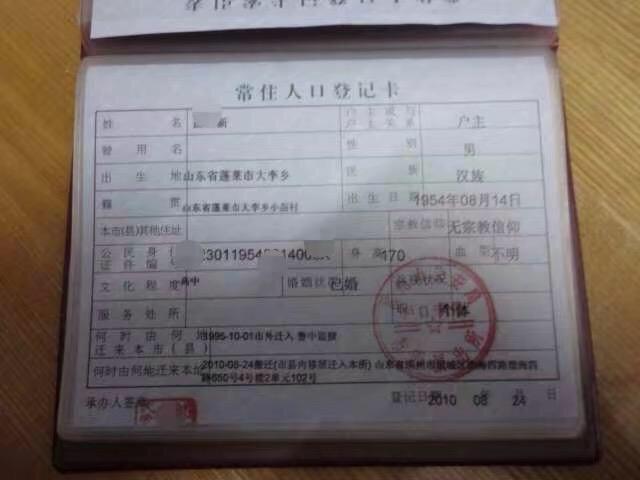 常住人口登记卡
姓名 新 户主或与户主关系 户主
曾用名 性别 男
出生地 山东省蓬莱市大李乡 民族 汉族
籍贯 山东省蓬莱市大季乡小 村 出生日期 1954年08月14日
本市(县)其他住址 宗教信仰 无宗教信仰
公民身份证件编号 身高 170 血型 不明
文化程度 高中 婚姻状况 已婚 兵役状况
服务处所
何时由何地迁来本市(县) 1995-10-01市外迁入
何时由何地迁来本址 2010-08-24搬迁(市县内移居迁入本街) 山东省滨州市滨城区渤海四路 650号4号楼2单元102号
承办人签章 登记日期 2010 年 08 月 24 日